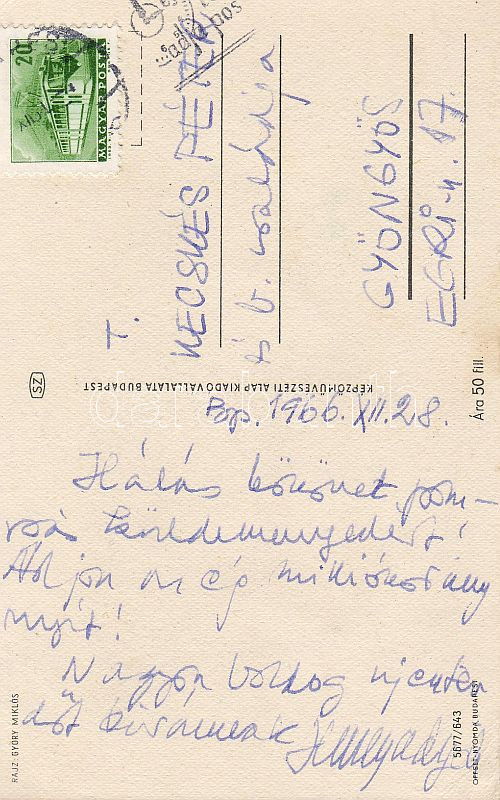 20
MAGYAR POSTA
T.
KECSKÉS PÉTER
és b. családja
GYÖNGYÖS
EGRI u. 17.
SZ
KÉPZŐMŰVÉSZETI ALAP KIADÓVÁLLALATA BUDAPEST
Ára 50 fill.
Bp. 1966. XII. 28.
Hálás köszönet pom-
pás küldeményedért!
Adjon az ég
Nagyon boldog újeszten-
dőt kívánnak
RAJZ: GYŐRY MIKLÓS
5677/643
OFFSET-NYOMDA BUDAPEST